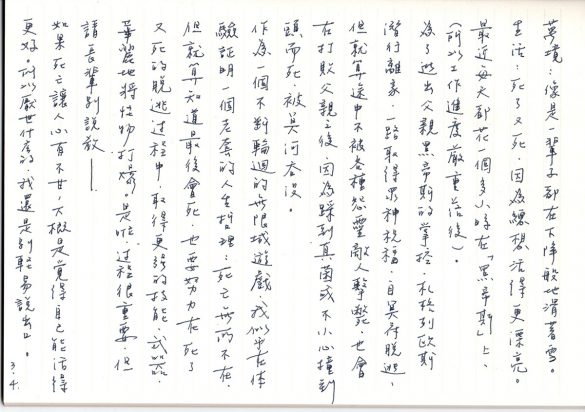 夢境：像是一輩子都在下降般地滑著雪。
生活：死了又死，因為總想活得更漂亮。
最近每天都花一個多小時在「黑帝斯」上，
（所以工作進度嚴重落後）。
為了逃出父親黑帝斯的掌控，札格列歐斯
潛行離家，一路取得眾神祝福，自冥府脫逃，
但就算途中不被各種怨靈敵人擊斃，也會
在打敗父親之後，因為踩到真菌或不小心撞到
頭而死，被冥河吞沒。
作為一個不斷輪迴的無限城遊戲，我似乎在体
驗証明一個老套的人生哲理：死亡無所不在，
但就算知道最後會死，也要努力在死了
又死的脫逃過程中，取得更強的技能、武器，
華麗地將怪物打爆。是啦，過程很重要，但
請長輩別說教——
如果死亡讓人心有不甘，大概是覺得自己能活得
更好。所以厭世什麼的，我還是別輕易說出口。
3.4.